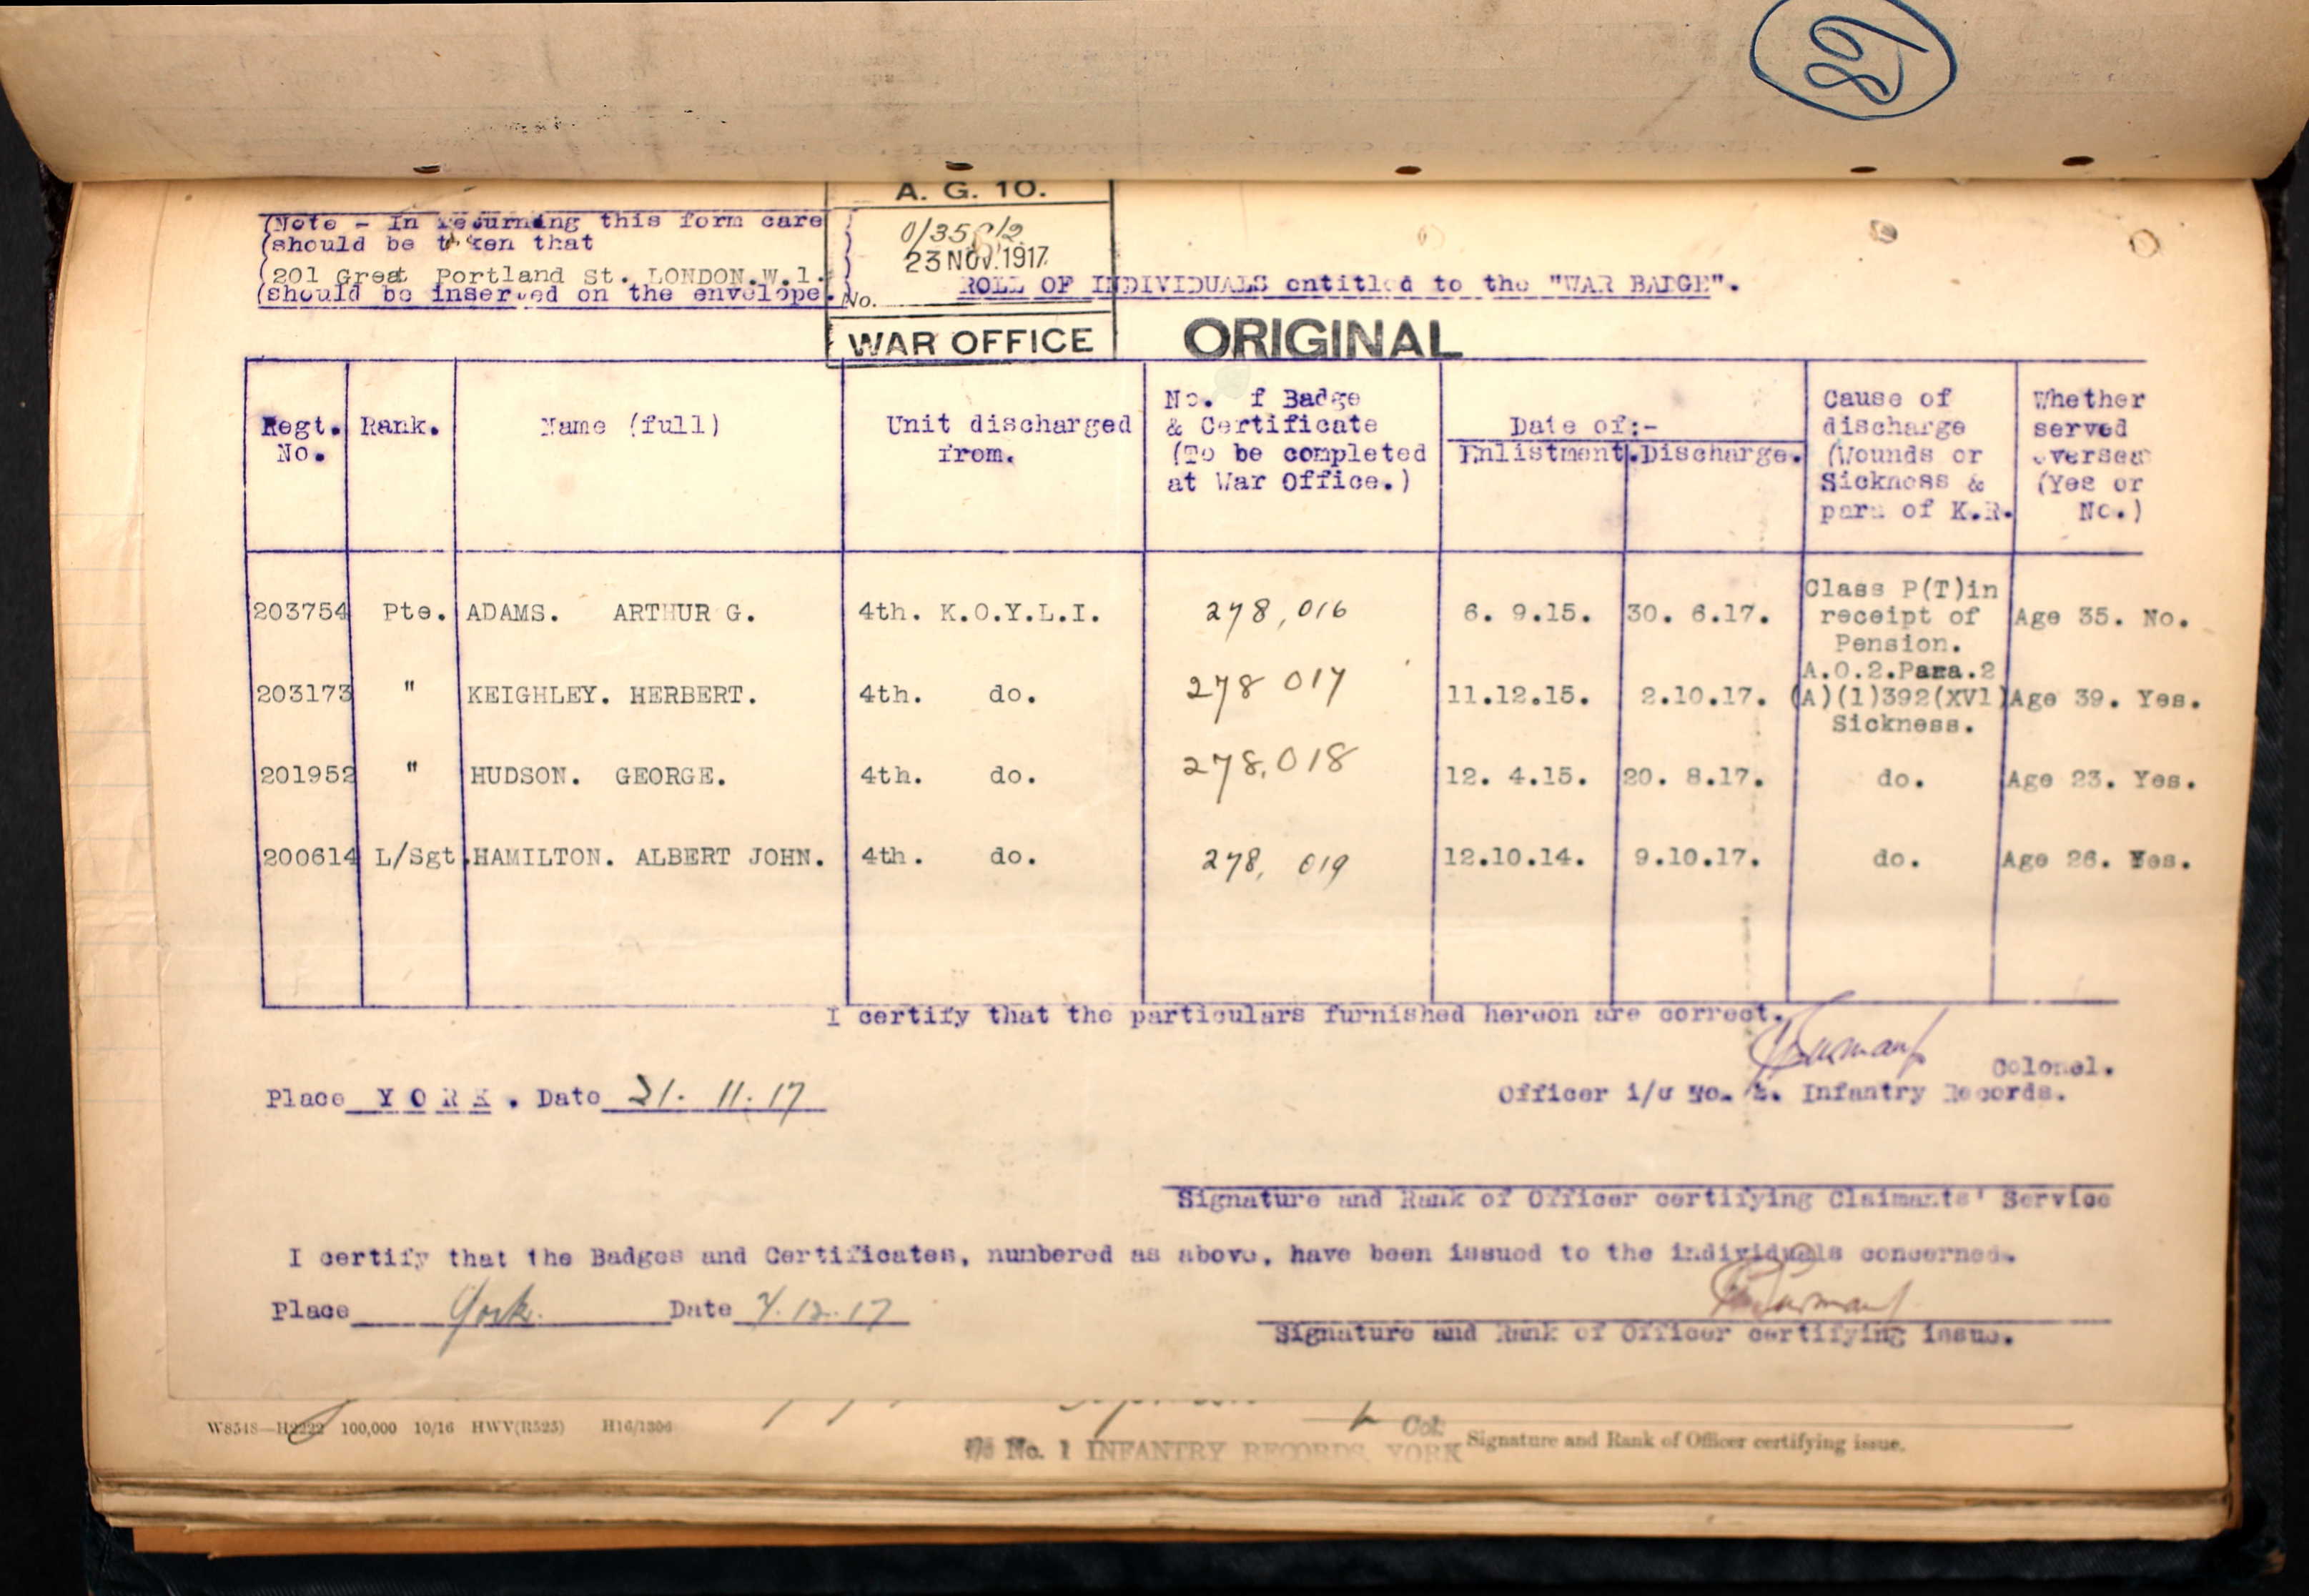 68
A. G. 10.
(Note - In returning this form care
(should be taken that
(201 Great Portland St. LONDON.W.1.
(should be inserted on the envelope.
23 NOV. 1917
No.
WAR OFFICE
ROLL OF INDIVIDUALS entitled to the "WAR BADGE".
ORIGINAL
Regt. No. Rank. Name (full) Unit discharged from. No. of Badge & Certificate (To be completed at War Office.) Date of:- Enlistment. Discharge. Cause of discharge (Wounds or Sickness & para of K.R. Whether served overseas (Yes or No.)
203754 Pte. ADAMS. ARTHUR G. 4th. K.O.Y.L.I. 278,016 6. 9.15. 30. 6.17. Class P(T)in receipt of Pension. Age 35. No.
203173 " KEIGHLEY. HERBERT. 4th. do. 278 017 11.12.15. 2.10.17. A.O.2.Para.2 (A)(1)392(XVI) Sickness. Age 39. Yes.
201952 " HUDSON. GEORGE. 4th. do. 278,018 12. 4.15. 20. 8.17. do. Age 23. Yes.
200614 L/Sgt. HAMILTON. ALBERT JOHN. 4th. do. 278, 019 12.10.14. 9.10.17. do. Age 26. Yes.
I certify that the particulars furnished hereon are correct.
Colonel.
Place Y O R K . Date 21. 11. 17
Officer i/c No. Infantry Records.
Signature and Rank of Officer certifying Claimants' Service
I certify that the Badges and Certificates, numbered as above, have been issued to the individuals concerned.
Place York. Date 7.12.17
Signature and Rank of Officer certifying issue.
W8548—H2222 100,000 10/16 HWV(R525) H16/1306
Col.
I/c No. 1 INFANTRY RECORDS, YORK
Signature and Rank of Officer certifying issue.